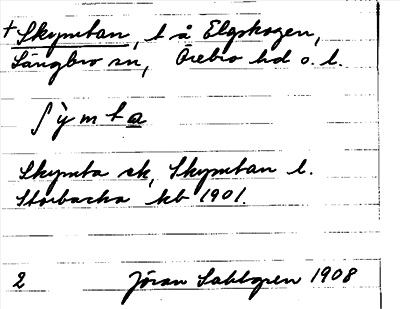 + Skymtan, t å Elgskogen,
Långbro sn, Örebro hd o. l.
ʃỳmta
Skymta sk, Skymtan l.
Storbacka kb 1901.
2 Jöran Sahlgren 1908